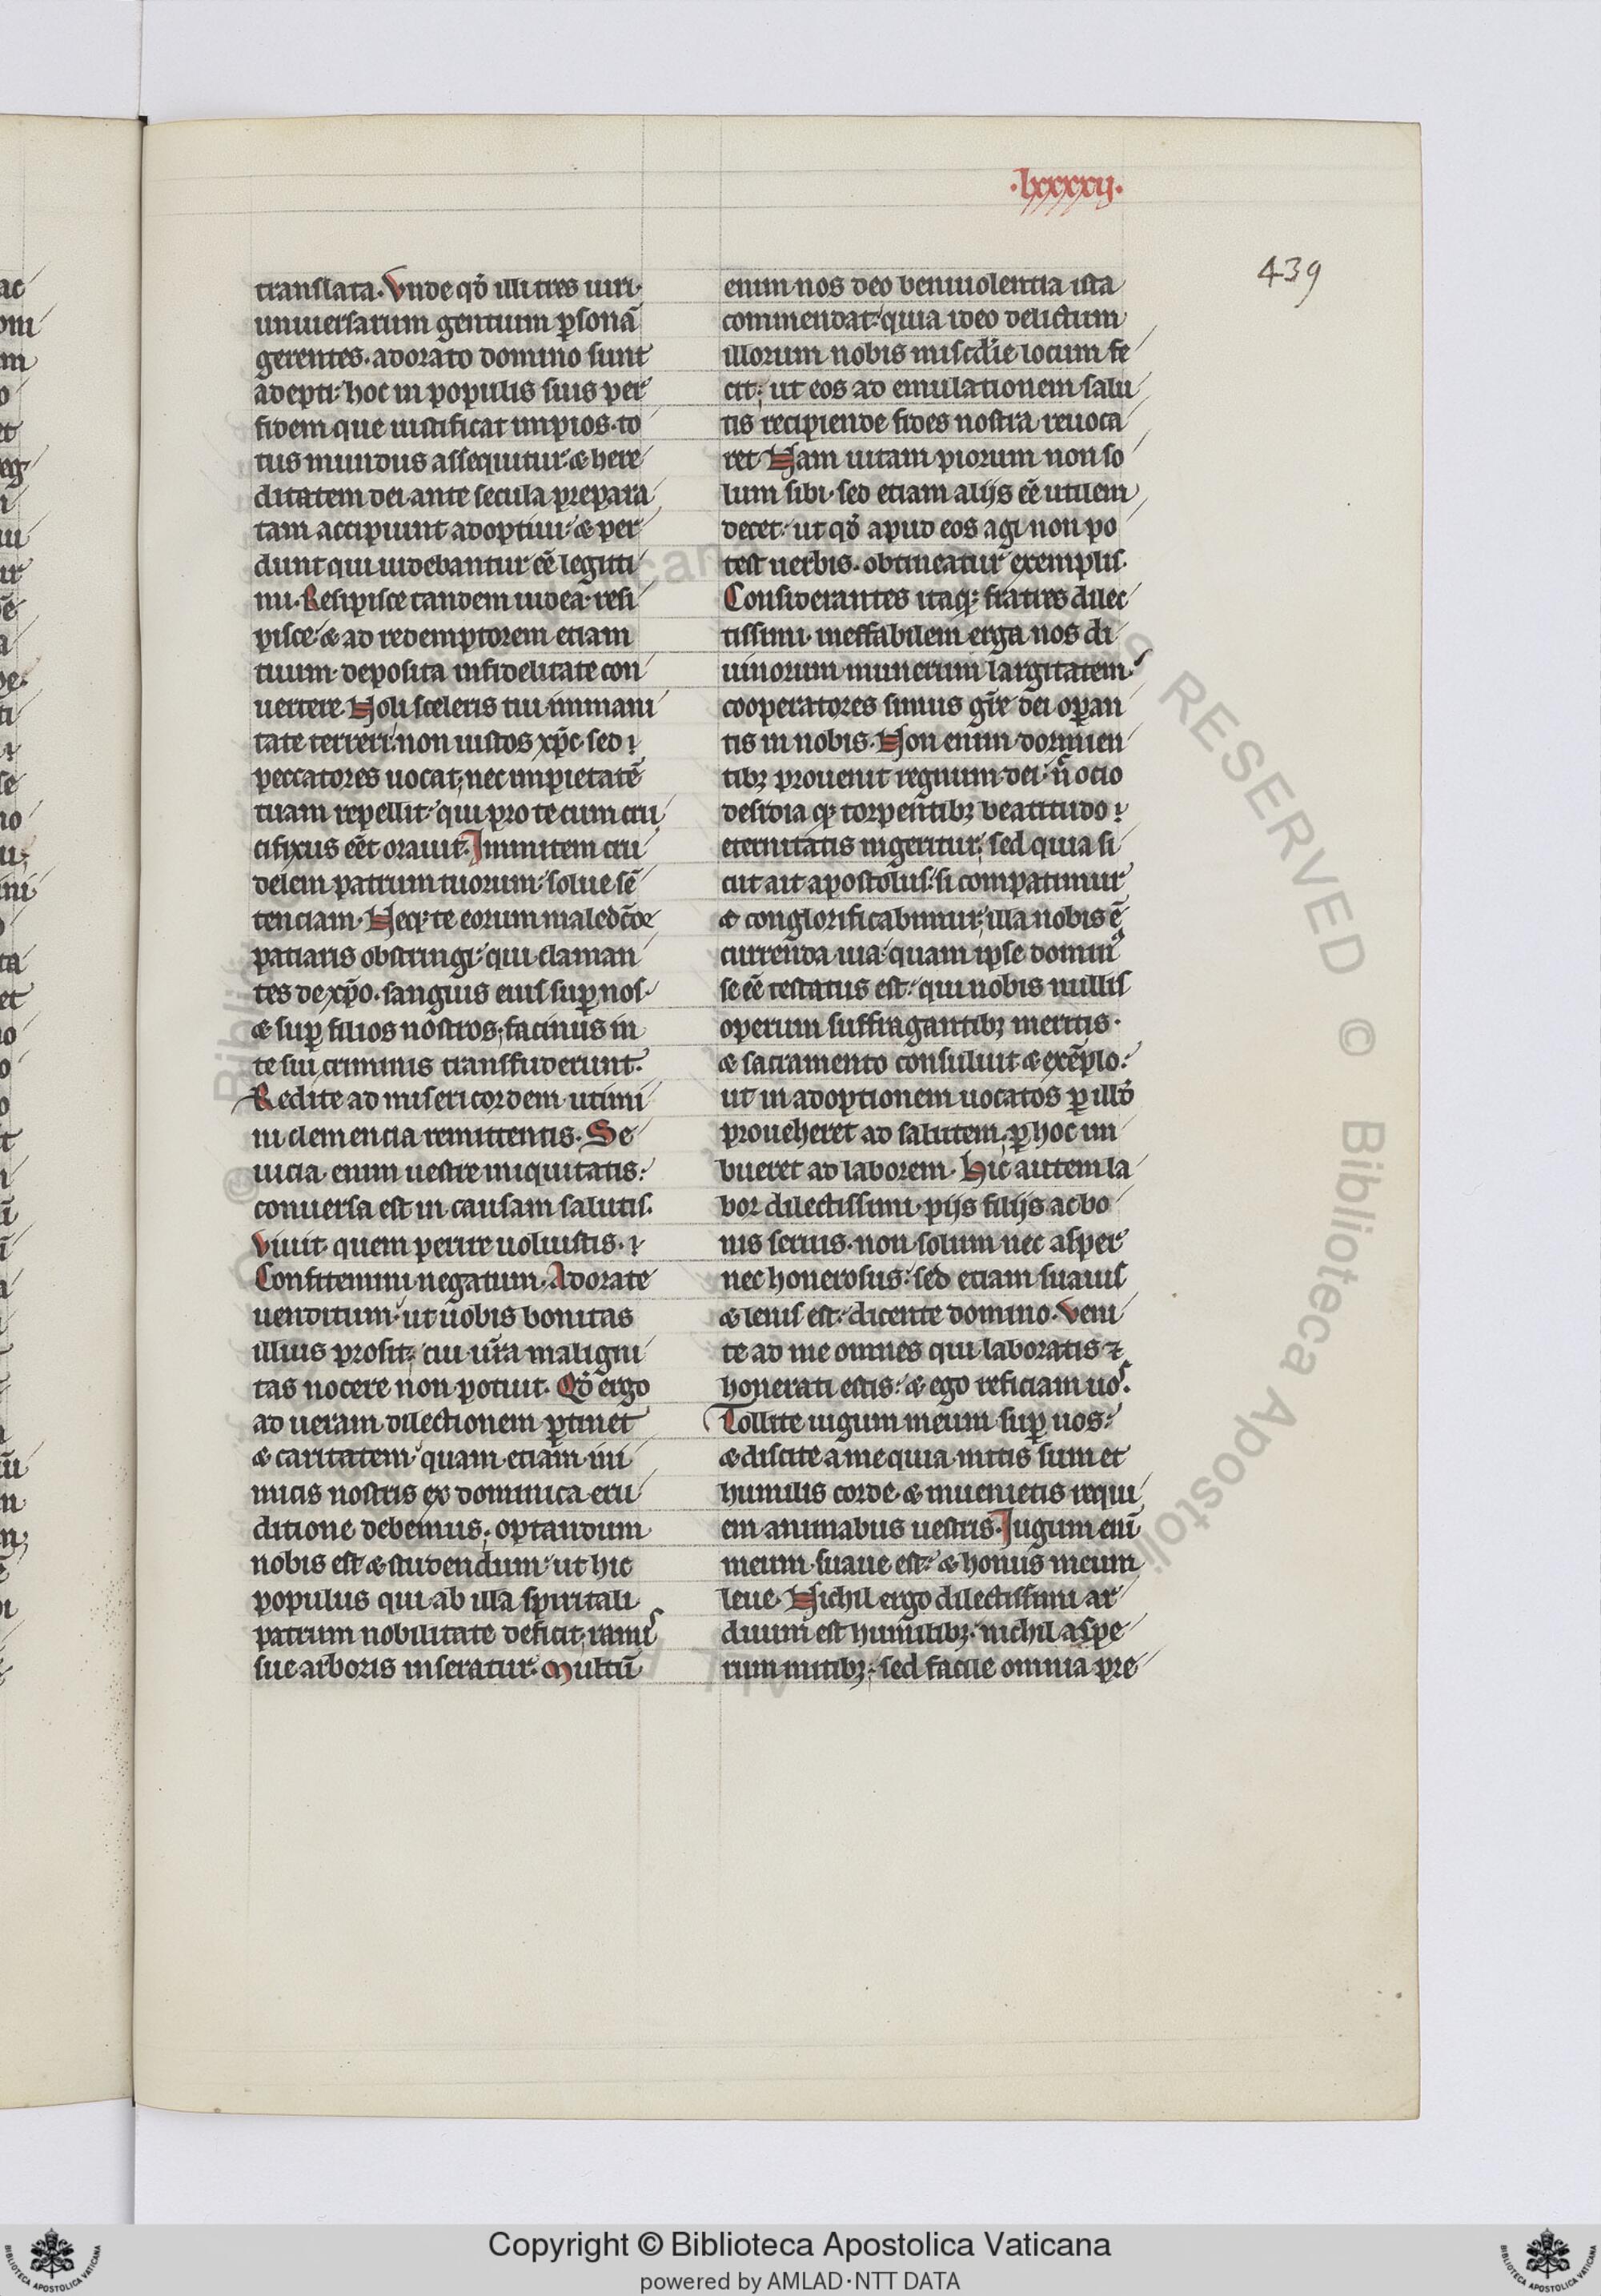 ·lxxxxij·
439
translata. Vnde qđ illi tres uiri·
uniuersarum gentium ꝑsonā
gerentes· adorato domino sunt
adepti: hoc in populis suis per
fidem que iustificat impios· to
tus mundus assequitur: & here
ditatem dei ante secula prepara
tam accipiunt adoptiui: & per
dunt qui uidebantur eē legitti
mi. Resipisce tandem iudea: resi
pisce: & ad redemptorem etiam
tuum· deposita infidelitate con
uertere. Noli sceleris tui immani
tate terreri: non iustos xp̄c· sed ⁊
peccatores uocat; nec impietatē
tuam repellit: qui pro te cum cru
cifixus eēt orauit. Immitem cru
delem patrum tuorum: solue sē
tenciam. Neqꝫ te eorum maledc̄oe
patiaris obstringi: qui claman
tes de xp̄o. sanguis eius suꝑ nos·
& suꝑ filios nostros; facinus in
te sui criminis transfuderunt.
Redite ad misericordem· utimi
ni clemencia remittentis. Se
uicia enim uestre iniquitatis:
conuersa est in causam salutis.
Viuit quem perire uoluistis. ⁊
Confitemini negatum. Adorate
uenditum· ut uobis bonitas
illius prosit; cui ur̄a maligni
tas nocere non potuit. Qđ ergo
ad ueram dilectionem ꝑtinet
& caritatem· quam etiam ini
micis nostris ex dominica eru
ditione debemus; optandum
nobis est & studendum: ut hic
populus qui ab illa spiritali
patrum nobilitate deficit; ramis
sue arboris inseratur. Multū
enim nos deo beniuolentia ista
commendat: quia ideo delictum
illorum nobis miscđie locum fe
cit; ut eos ad emulationem salu
tis recipiende fides nostra reuoca
ret. Nam uitam piorum non so
lum sibi· sed etiam alijs eē utilem
decet: ut qđ apud eos agi non po
test uerbis. obtineatur exemplis.
Considerantes itaqꝫ fratres dilec
tissimi· ineffabilem erga nos di
uinorum munerum largitatem·
cooperatores simus gr̄e dei operan
tis in nobis. Non enim dormien
tibꝫ prouenit regnum dei: n̄ ocio
desidia qꝫ torpentibꝫ beatitudo ⁊
eternitatis ingeritur; sed quia si
cut ait apostolus: si compatimur
& conglorificabimur; illa nobis ē
currenda uia: quam ipse dominꝰ
se eē testatus est: qui nobis nullis
operum suffragantibꝫ meritis·
& sacramento consuluit & exēplo:
ut in adoptionem uocatos ꝑ illđ
proueheret ad salutem; ꝑ hoc im
bueret ad laborem. Hic autem la
bor dilectissimi· pijs filijs ac bo
nis seruis· non solum nec asper
nec honerosus: sed etiam suauis
& lenis est: dicente domino. Veni
te ad me omnes qui laboratis ⁊
honerati estis: & ego reficiam uos.
Tollite iugum meum suꝑ uos:
& discite a me quia mitis sum et
humilis corde· & inuenietis requi
em animabus uestris. Jugum enī
meum suaue est: & honus meum
leue. Nichil ergo dilectissimi ar
duum est humilibꝫ· nichil aspe
rum mitibꝫ: sed facile omnia pre
Copyright © Biblioteca Apostolica Vaticana
powered by AMLAD·NTT DATA